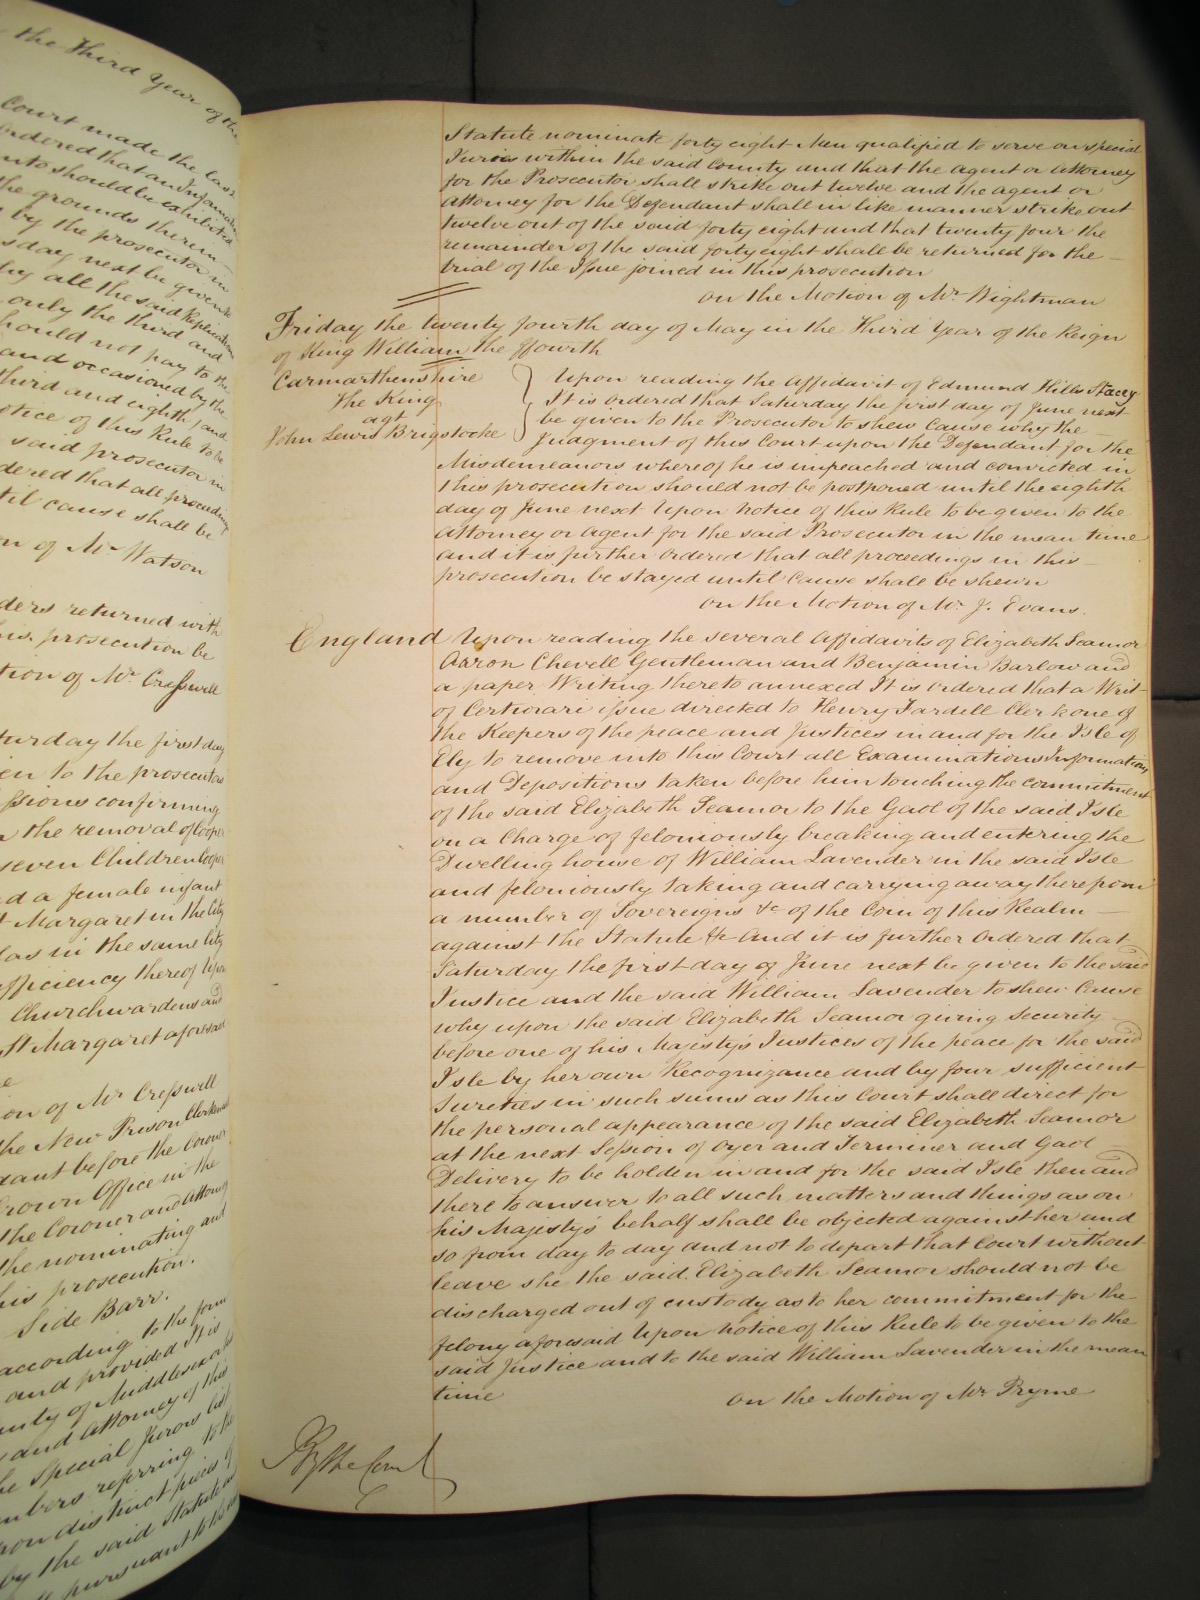 the Third Year of the
Court made the last
ordered that an Information
should be exhibited
the grounds therein
by the prosecutor in
day next be given
by all the said
only the third and
should not pay to the
and occasioned by the
third and eighth and
notice of this Rule to be
said prosecutor in
ordered that all proceedings
until cause shall be
on of Mr Watson
ders returned with
his prosecution be
tion of Mr Cresswell
turday the first day
en to the prosecutors
ssions confirming
the removal of Cooper
seven Children Cooper
d a female infant
t Margaret in the City
las in the same City
fficiency thereof Upon
Churchwardens and
St Margaret aforesaid
on of Mr Cresswell
the New Prison Clerkenwell
dant before the Coroner
Crown Office in the
the Coroner and Attorney
the nominating and
his prosecution.
Side Barr.
according to the form
and provided It is
unty of Middlesex
and Attorney of this
the Special Jurors list
mbers referring to the
pon distinct pieces of
by the said Statute
pursuant to the
Statute nominate forty eight Men qualified to serve on special
Juries within the said County and that the agent or Attorney
for the Prosecutor shall strike out twelve and the agent or
Attorney for the Defendant shall in like manner strike out
twelve out of the said forty eight and that twenty four the
remainder of the said forty eight shall be returned for the
trial of the Issue joined in this prosecution
on the Motion of Mr Wightman
Friday the twenty fourth day of May in the Third Year of the Reign
of King William the ffourth
Carmarthenshire
The King
agt
John Lewis Brigstocke
Upon reading the Affidavit of Edmund Hills Stacey
It is ordered that Saturday the first day of June next
be given to the Prosecutor to shew Cause why the
Judgment of this Court upon the Defendant for the
Misdemeanors whereof he is impeached and convicted in
this prosecution should not be postponed until the eighth
day of June next Upon Notice of this Rule to be given to the
Attorney or Agent for the said Prosecutor in the mean time
and it is further Ordered that all proceedings in this
prosecution be stayed until Cause shall be shewn
on the Motion of Mr J. Evans.
England Upon reading the several Affidavits of Elizabeth Seamor
Aaron Chevell Gentleman and Benjamin Barlow and
a paper Writing thereto annexed It is Ordered that a Writ
of Certiorari issue directed to Henry Fardell Clerk one of
the Keepers of the peace and Justices in and for the Isle of
Ely to remove into this Court all Examinations Informations
and Depositions taken before him touching the commitment
of the said Elizabeth Seamor to the Gaol of the said Isle
on a Charge of feloniously breaking and entering the
Dwelling house of William Lavender in the said Isle
and feloniously taking and carrying away therefrom
a number of Sovereigns &c of the Coin of this Realm
against the Statute &c And it is further Ordered that
Saturday the first day of June next be given to the said
Justice and the said William Lavender to shew Cause
why upon the said Elizabeth Seamor giving Security
before one of his Majesty's Justices of the peace for the said
Isle by her own Recognizance and by four sufficient
Sureties in such sums as this Court shall direct for
the personal appearance of the said Elizabeth Seamor
at the next Session of Oyer and Terminer and Gaol
Delivery to be holden in and for the said Isle then and
there to answer to all such matters and things as on
his Majesty's behalf shall be objected against her and
so from day to day and not to depart that Court without
leave she the said Elizabeth Seamor should not be
discharged out of custody as to her commitment for the
felony aforesaid Upon Notice of this Rule to be given to the
said Justice and to the said William Lavender in the mean
time
on the Motion of Mr Pryme
By the Court